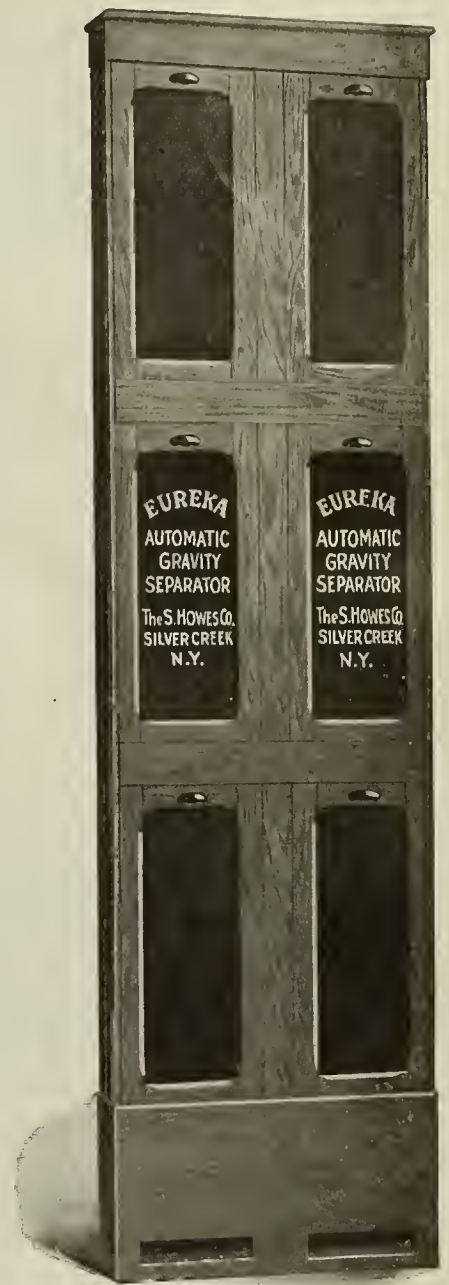 EUREKA
AUTOMATIC
GRAVITY
SEPARATOR
The S. HOWES Co.
SILVER CREEK
N.Y.
EUREKA
AUTOMATIC
GRAVITY
SEPARATOR
The S. HOWES Co.
SILVER CREEK
N.Y.